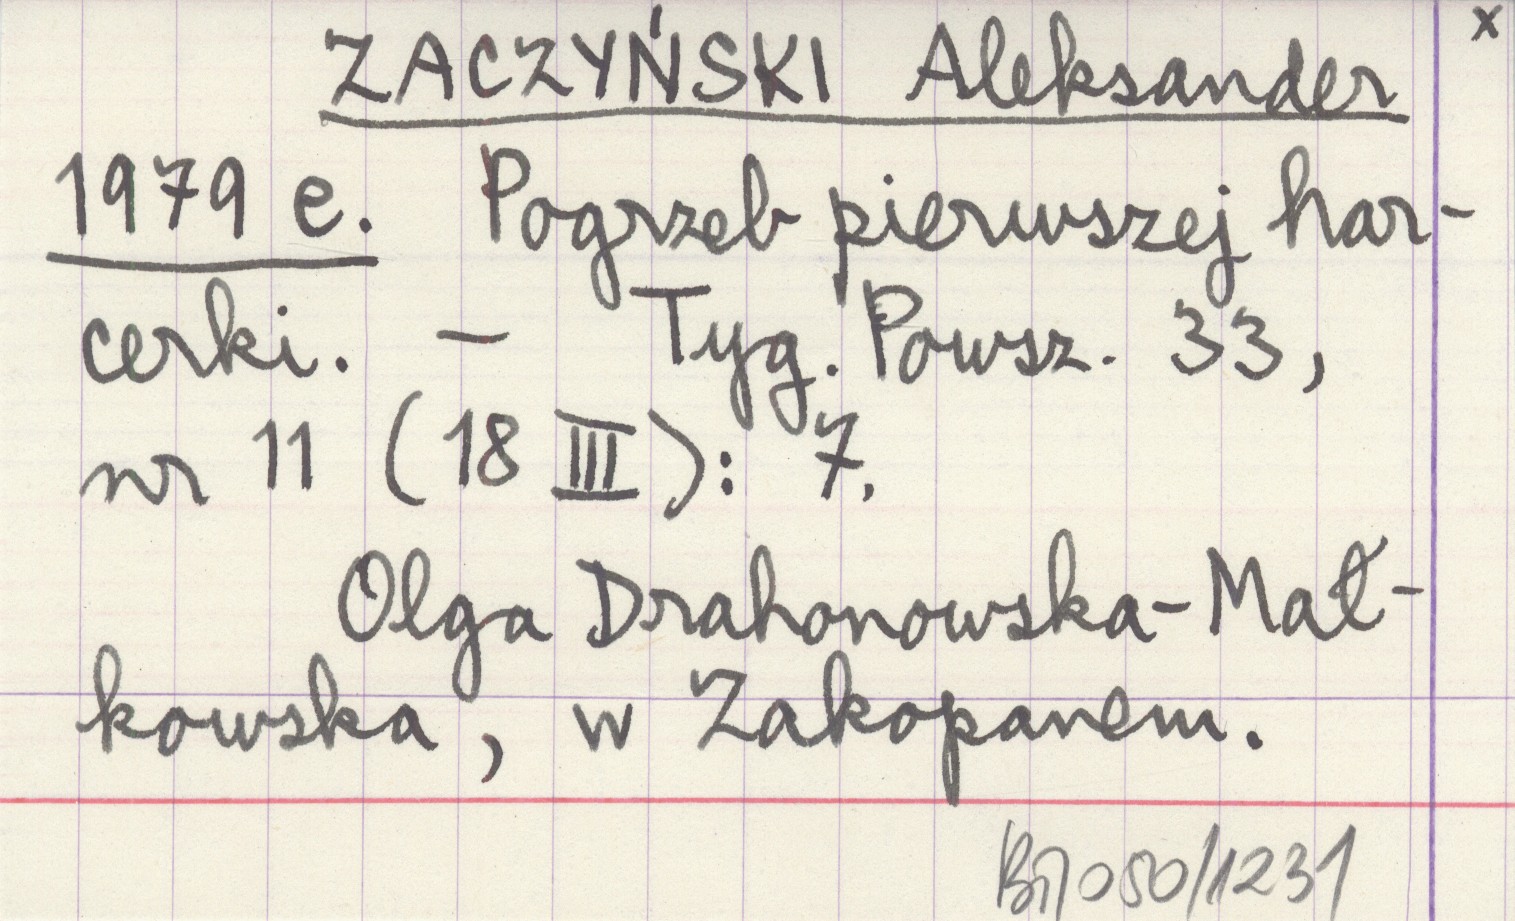 x
ZACZYŃSKI Aleksander
1979 e. Pogrzeb pierwszej har-
cerki. – Tyg. Powsz. 33,
nr 11 (18 III): 7.
Olga Drahonowska-Mał-
kowska, w Zakopanem.
050/1231